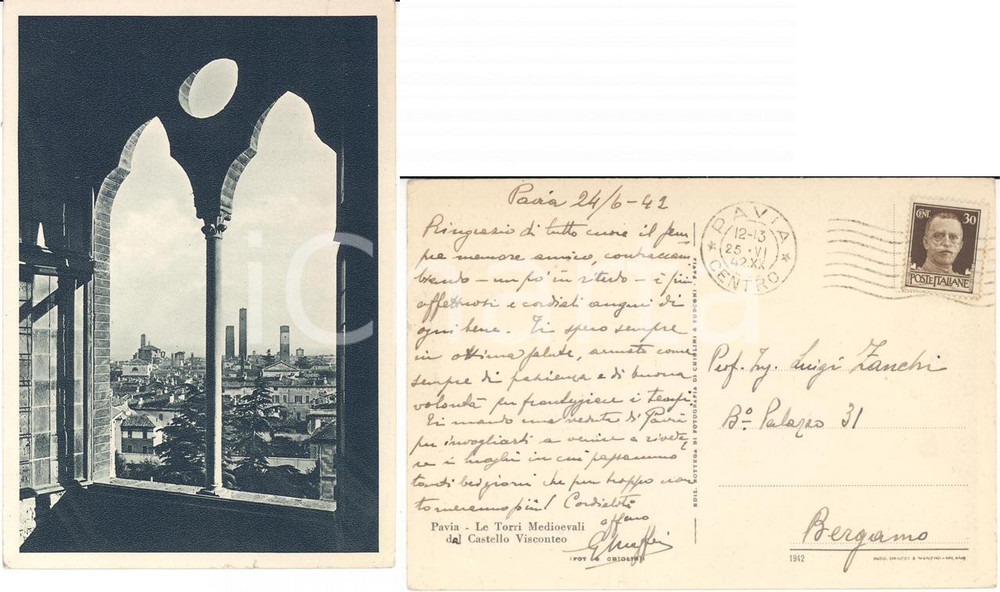 Pavia 24/6-42
Ringrazio di tutto cuore il sem-
pre memore amico, contraccam
biando - un po' in ritardo - i più
affettuosi e cordiali auguri di
ogni bene. Ti spero sempre
in ottima salute, armato come
sempre di pazienza e di buona
volontà per fronteggiare i tempi.
Ti mando una veduta di Pavia
per invogliarti a venire a rivede
re i luoghi in cui passammo
tanti bei giorni che pur troppo non
torneranno più! Cordialità
affmo
Pavia - Le Torri Medioevali
dal Castello Visconteo
(FOT. G. CHIOLINI)
EDIZ. BOTTEGA DI FOTOGRAFIA DI CHIOLINI & TURCONI - PAVIA
PAVIA
12-13
25.VI
42.XX
CENTRO
CENT. 30
POSTE ITALIANE
Prof. Ing. Luigi Zanchi
Bo Palazzo 31
Bergamo
1942
iCharta